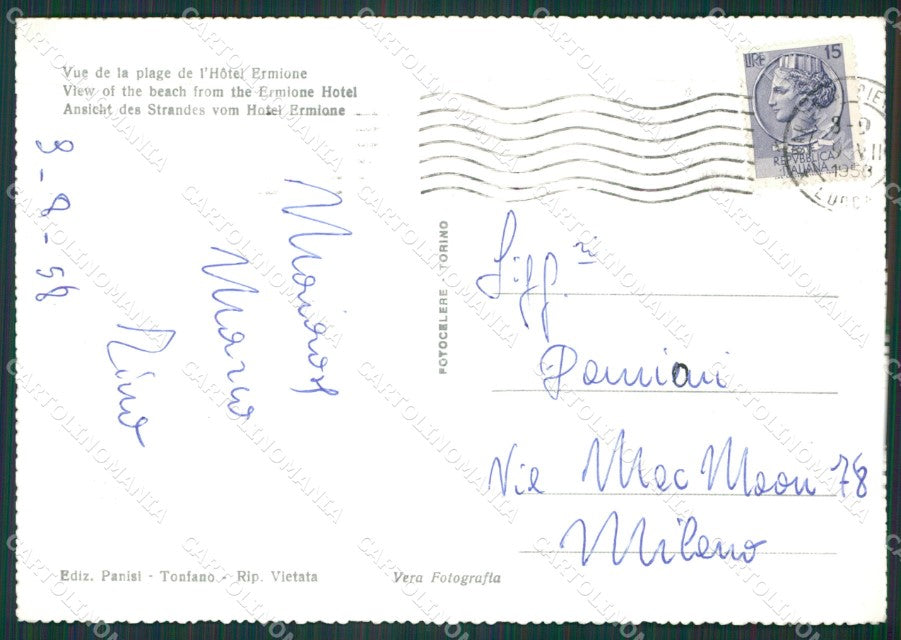 Vue de la plage de l'Hôtel Ermione
View of the beach from the Ermione Hotel
Ansicht des Strandes vom Hotel Ermione
9-8-58
Marino
Nino
FOTOCELERE - TORINO
LIRE 15
REPVBBLICA
ITALIANA
8-9
VIII
1958
LUCCA
Sigg.ri
Damiani
Via Mac Maon 78
Milano
Ediz. Panisi - Tonfano - Rip. Vietata
Vera Fotografia
CARTOLINOMANIA